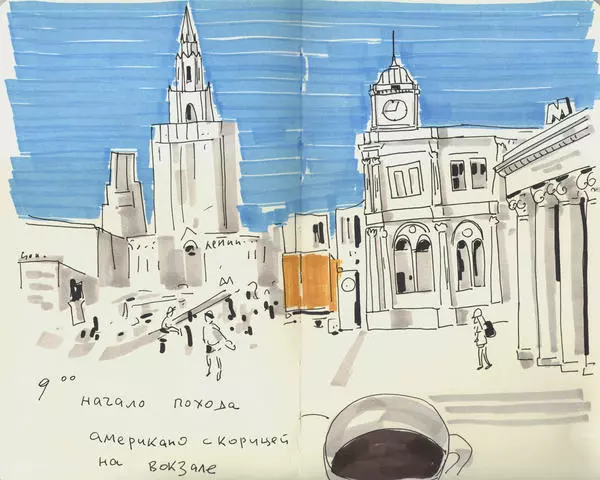 ЛЕНИН
М
9⁰⁰
начало похода
американо с корицей
на вокзале